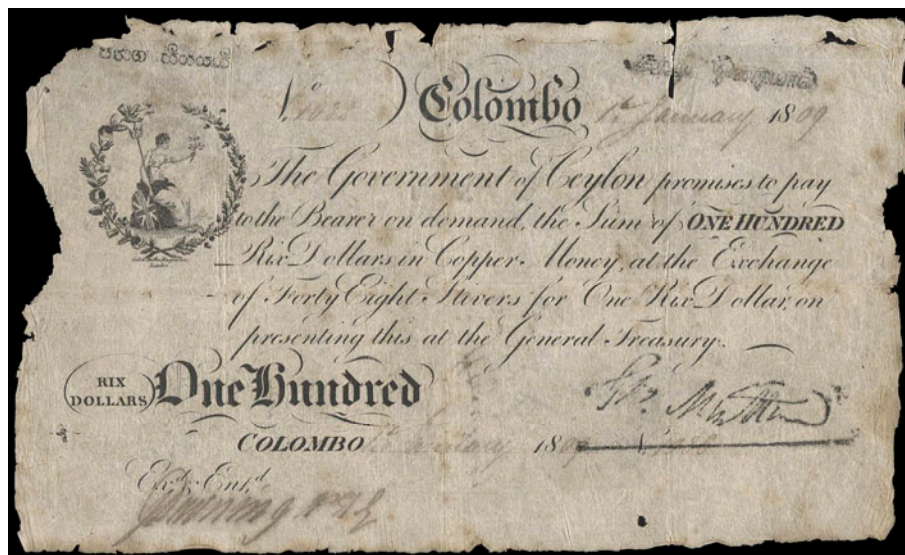 No
Colombo 1st January 1809
The Government of Ceylon promises to pay
to the Bearer on demand, the Sum of ONE HUNDRED
Rix Dollars in Copper Money, at the Exchange
of Forty Eight Stivers for One Rix Dollar, on
presenting this at the General Treasury.
RIX
DOLLARS
One Hundred
COLOMBO January 18
Exd. & Entd.